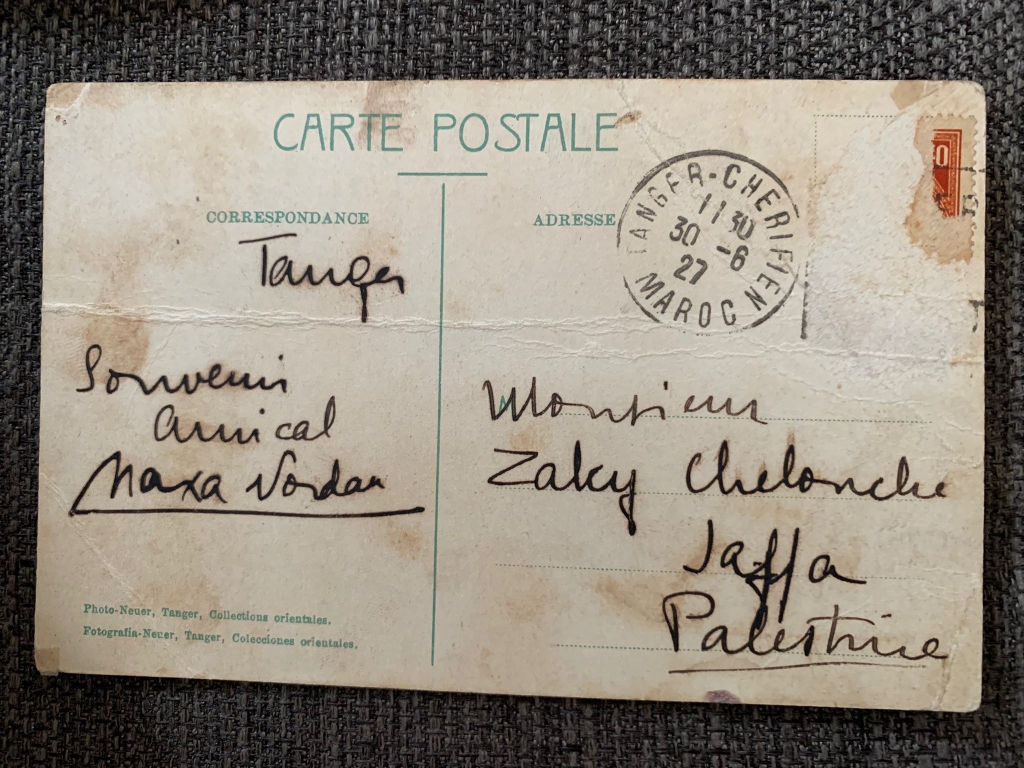 CARTE POSTALE
CORRESPONDANCE
ADRESSE
TANGER-CHERIFIEN
11 30
30 -6
27
MAROC
0
Tanger
Souvenir
amical
Maxa Nordau
Monsieur
Zaky Chelouche
Jaffa
Palestine
Photo-Neuer, Tanger, Collections orientales.
Fotografía-Neuer, Tanger, Colecciones orientales.